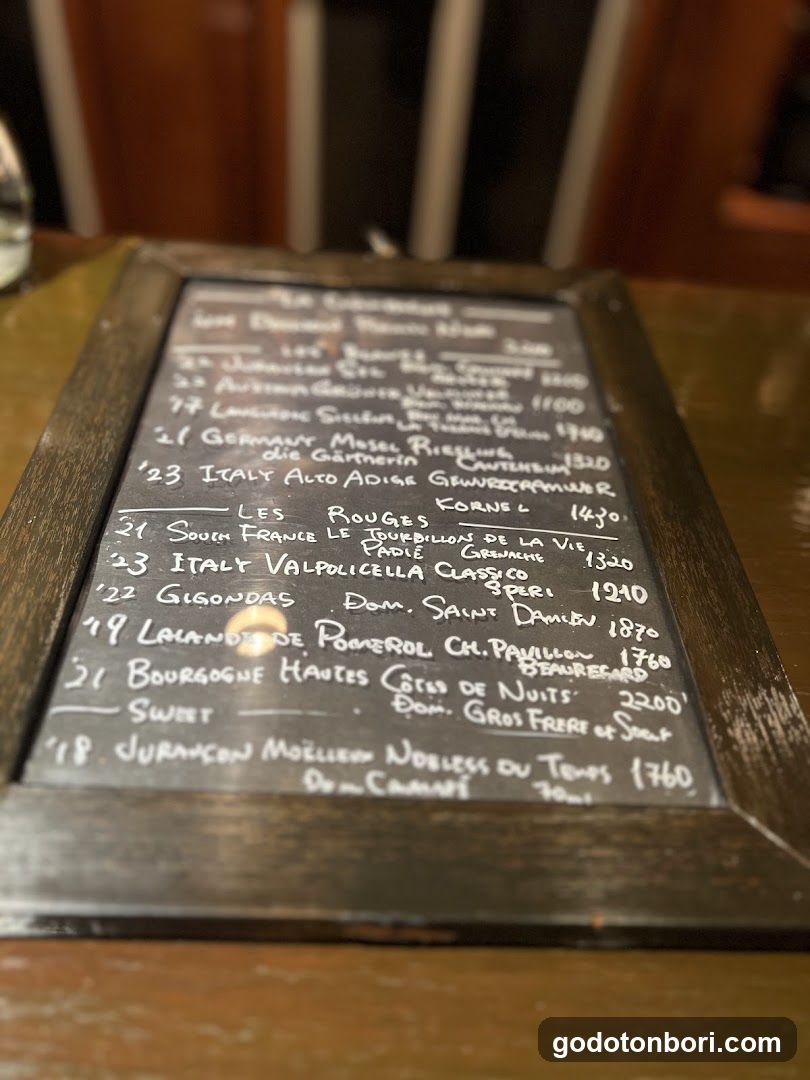 LES
'22 AUTRICHE GRÜNER VELTLINER
1100
'17 LANGUEDOC
1760
'21 GERMANY MOSEL RIESLING
die Gärtnerin CANTZHEIM 1320
'23 ITALY ALTO ADIGE GEWURZTRAMINER
KORNEL 1430
LES ROUGES
'21 SOUTH FRANCE LE TOURBILLON DE LA VIE
PADIÉ GRENACHE 1320
'23 ITALY VALPOLICELLA CLASSICO
SPERI 1210
'22 GIGONDAS DOM. SAINT DAMIEN 1870
'19 LALANDE DE POMEROL CH. PAVILLON 1760
BEAUREGARD
'21 BOURGOGNE HAUTES CÔTES DE NUITS 2200
DOM. GROS FRERE et Soeur
SWEET
'18 JURANÇON MOËLLEUX NOBLESS DU TEMPS 1760
Dom. CAUHAPÉ 70ml
godotonbori.com